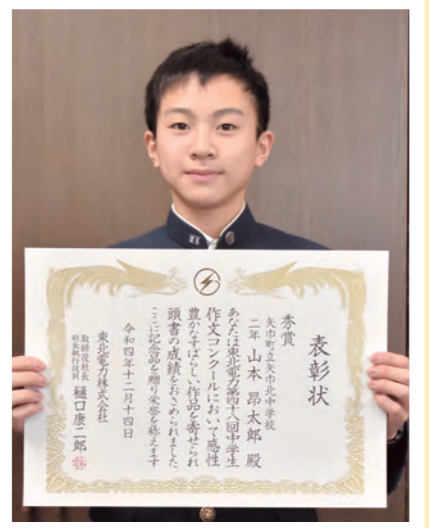 表彰状
秀賞
矢巾町立矢巾北中学校
二年 山本 昂太郎 殿
あなたは東北電力第四十八回中学生
作文コンクールにおいて感性
豊かなすばらしい作品を寄せられ
頭書の成績をおさめられました
ここに記念品を贈り栄誉を称えます
令和四年十二月十四日
東北電力株式会社
取締役社長
社長執行役員
樋口康二郎